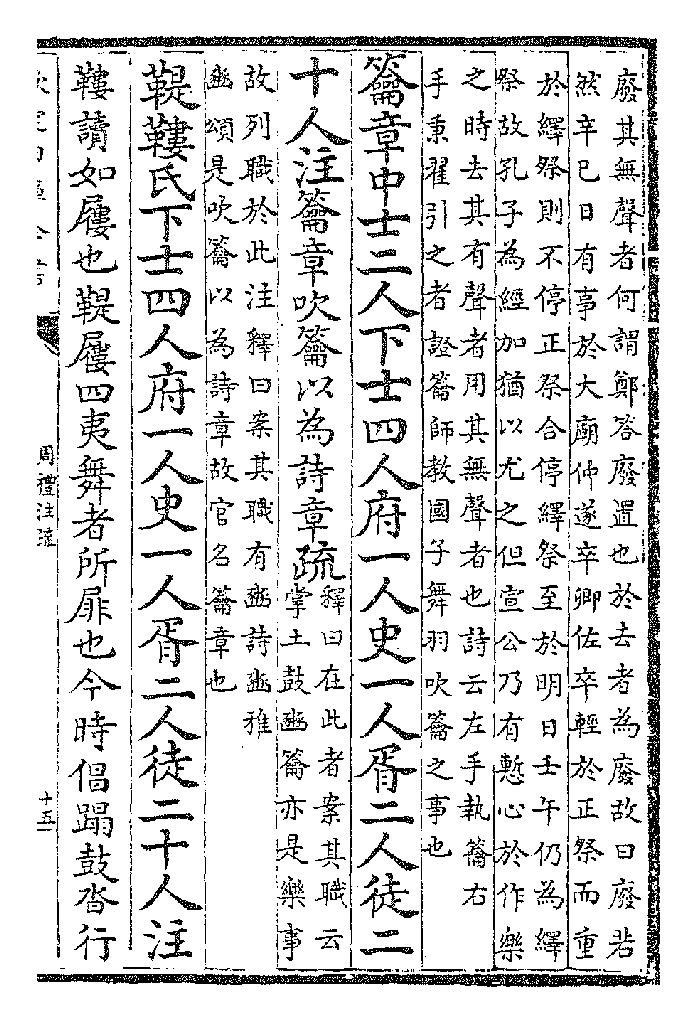 廢其無聲者何謂鄭答廢置也於去者為廢故曰廢若
然辛巳日有事於大廟仲遂卒卿佐卒輕於正祭而重
於繹祭則不停正祭合停繹祭至於明日壬午仍為繹
祭故孔子為經加猶以尤之但宣公乃有慙心於作樂
之時去其有聲者用其無聲者也詩云左手執籥右
手秉翟引之者證籥師教國子舞羽吹籥之事也
籥章中士二人下士四人府一人史一人胥二人徒二
十人注籥章吹籥以為詩章疏
釋曰在此者案其職云
掌土鼓豳籥亦是樂事
故列職於此注釋曰案其職有豳詩豳雅
豳頌是吹籥以為詩章故官名籥章也
鞮鞻氏下士四人府一人史一人胥二人徒二十人注
鞻讀如屨也鞮屨四夷舞者所屝也今時倡蹋鼓沓行
欽定四庫全書
周禮注疏
十五